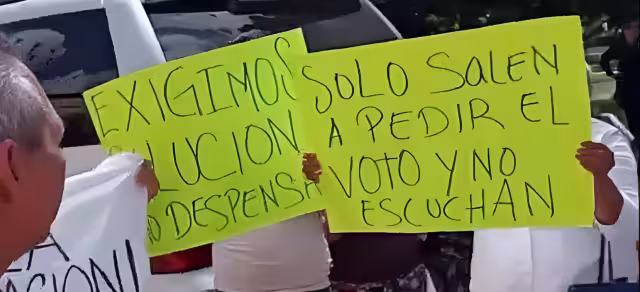 EXIGIMOS
SOLUCION
NO DESPENSA
SOLO SALEN
A PEDIR EL
VOTO Y NO
ESCUCHAN